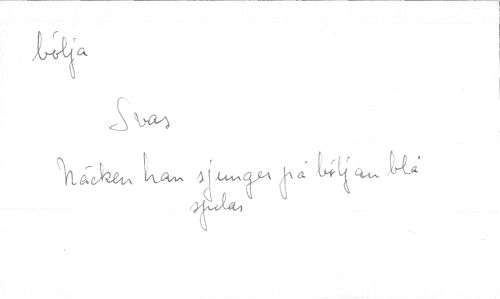 bölja
Svas
Näcken han sjunger på böljan blå
spelar